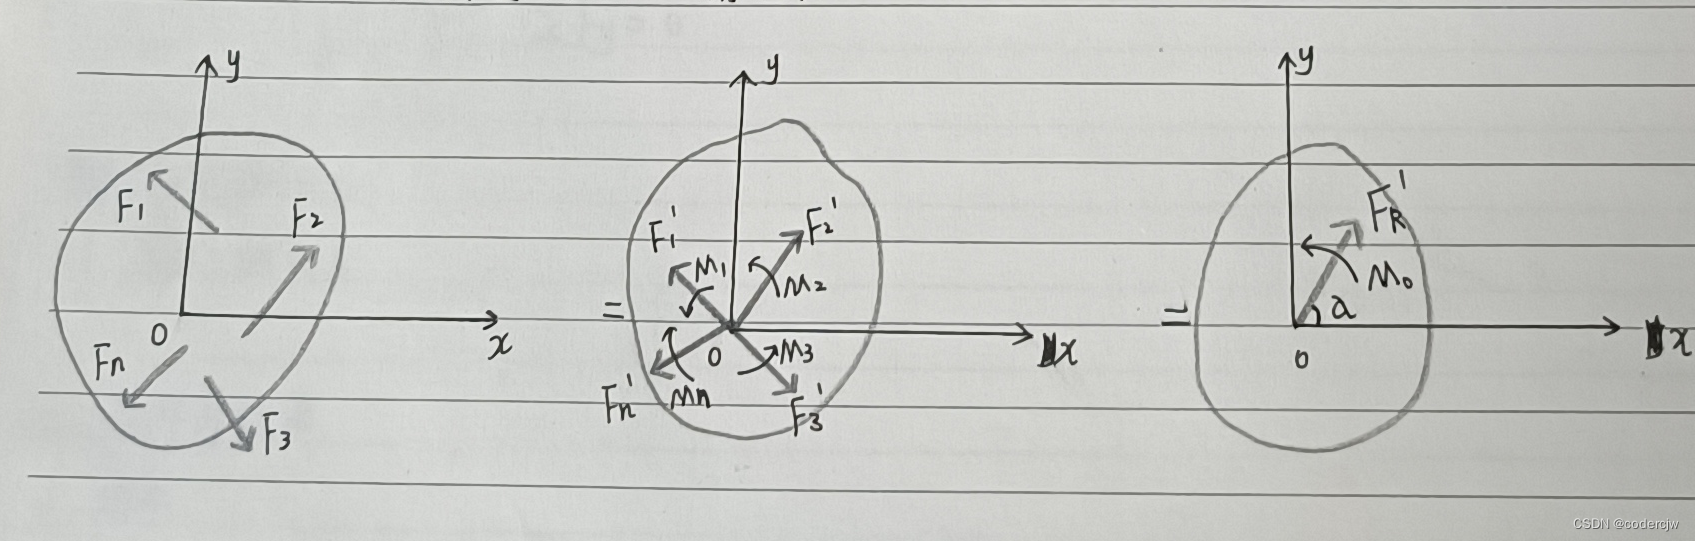 y
F1
F2
O
x
Fn
F3
=
y
F1'
M1
F2'
M2
O
M3
x
Fn'
Mn
F3'
=
y
FR'
M0
a
O
x
CSDN @codercjw